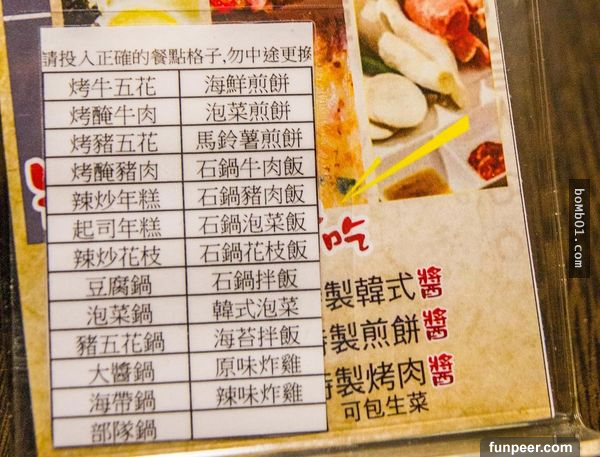 請投入正確的餐點格子,勿中途更換
烤牛五花 海鮮煎餅
烤醃牛肉 泡菜煎餅
烤豬五花 馬鈴薯煎餅
烤醃豬肉 石鍋牛肉飯
辣炒年糕 石鍋豬肉飯
起司年糕 石鍋泡菜飯
辣炒花枝 石鍋花枝飯
豆腐鍋 石鍋拌飯
泡菜鍋 韓式泡菜
豬五花鍋 海苔拌飯
大醬鍋 原味炸雞
海帶鍋 辣味炸雞
部隊鍋
吃
製韓式醬
製煎餅醬
製烤肉醬
可包生菜
boMb01.com
funpeer.com